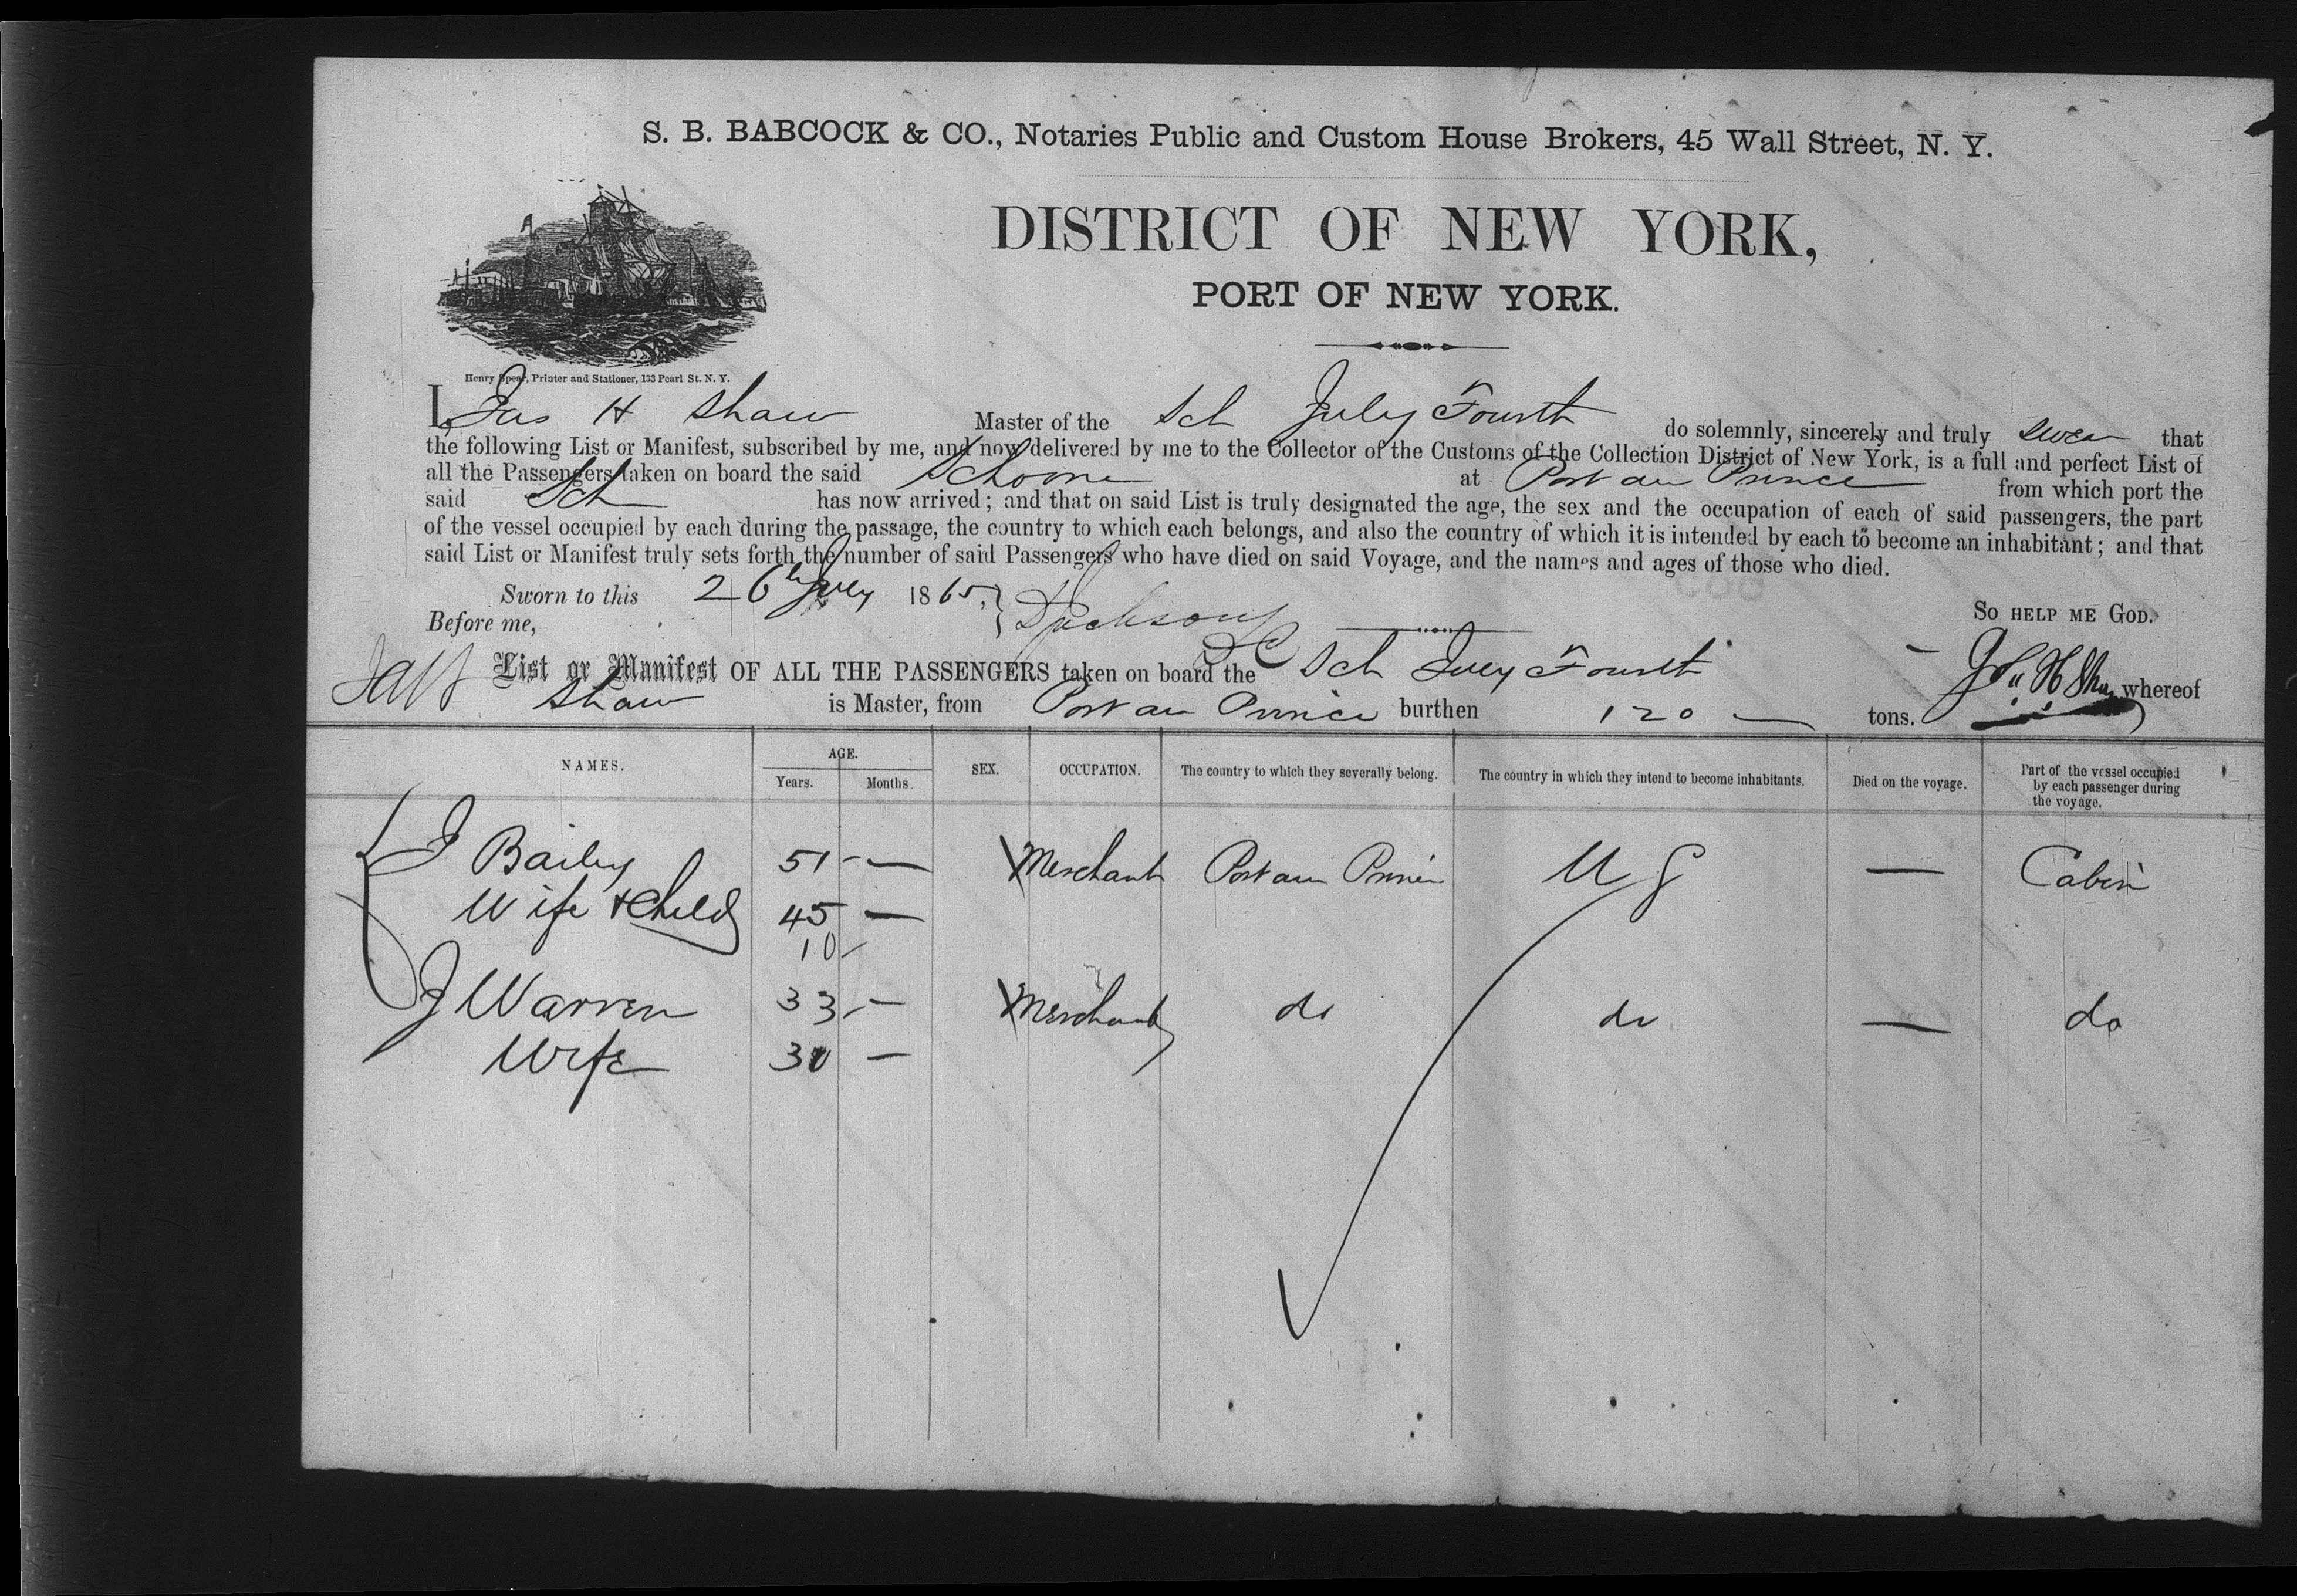 S. B. BABCOCK & CO., Notaries Public and Custom House Brokers, 45 Wall Street, N. Y.
DISTRICT OF NEW YORK,
PORT OF NEW YORK.
Henry Spear, Printer and Stationer, 133 Pearl St. N. Y.
I, Jas H Shaw Master of the Sch July Fourth do solemnly, sincerely and truly swear that
the following List or Manifest, subscribed by me, and now delivered by me to the Collector of the Customs of the Collection District of New York, is a full and perfect List of
all the Passengers taken on board the said Schoone at Port au Prince from which port the
said Sch has now arrived; and that on said List is truly designated the age, the sex and the occupation of each of said passengers, the part
of the vessel occupied by each during the passage, the country to which each belongs, and also the country of which it is intended by each to become an inhabitant; and that
said List or Manifest truly sets forth the number of said Passengers who have died on said Voyage, and the names and ages of those who died.
Sworn to this 26th July 1865, }
Before me, Jackson
SO HELP ME GOD.
List or Manifest OF ALL THE PASSENGERS taken on board the Sch July Fourth whereof
Jas H Shaw is Master, from Port au Prince burthen 120 — tons.
NAMES. AGE. Years. Months. SEX. OCCUPATION. The country to which they severally belong. The country in which they intend to become inhabitants. Died on the voyage. Part of the vessel occupied by each passenger during the voyage.
J Bailey 51 — Merchant Port au Prince U S — Cabin
Wife & Child 45 —
10
J Warren 33 — Merchant do do — do
Wife 30 —